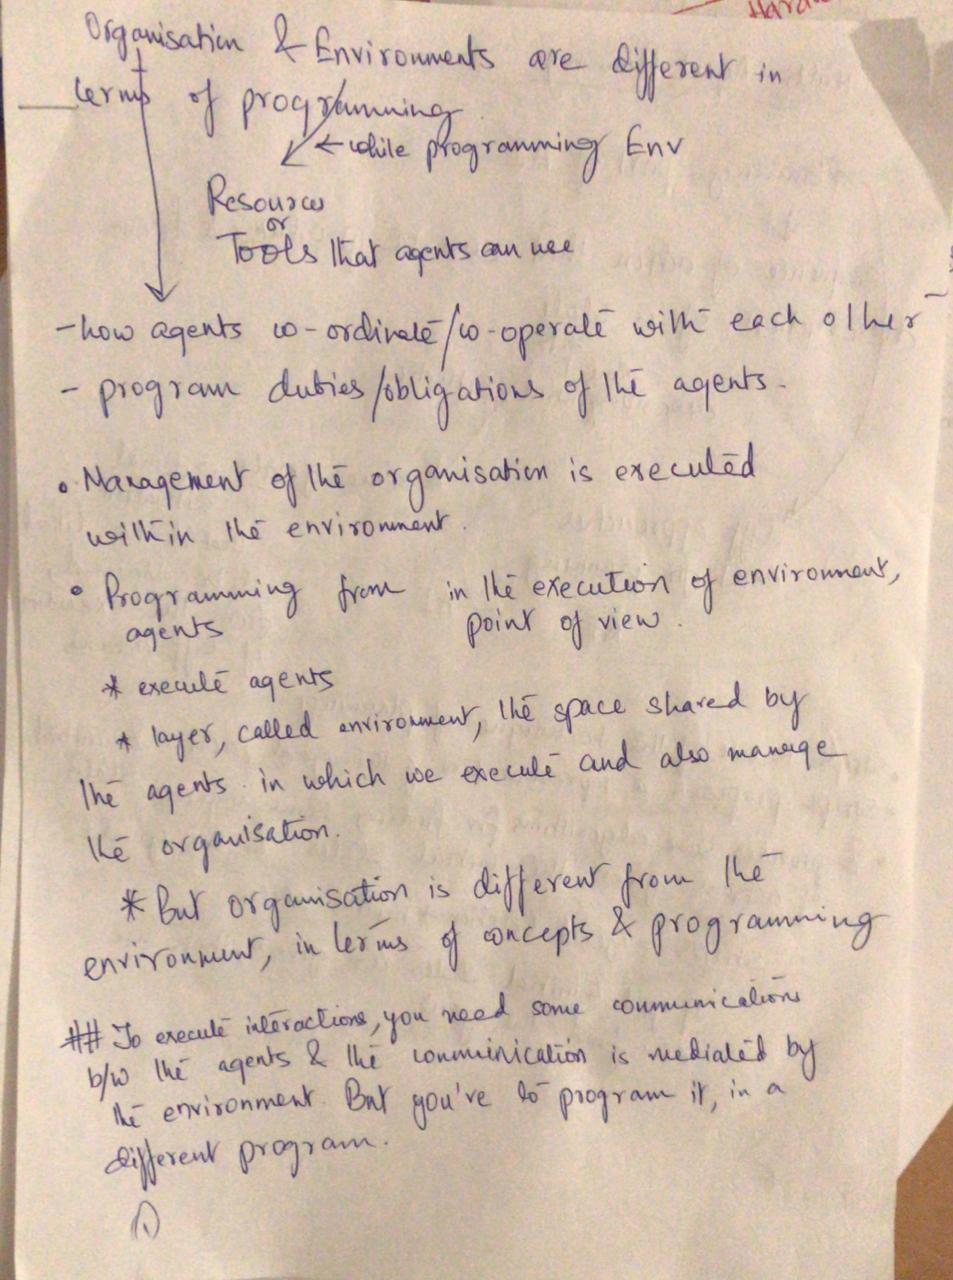 Hardw
Organisation & Environments are different in
terms of programming
← while programming Env
Resources
or
Tools that agents can use
- how agents co-ordinate/co-operate with each other
- program duties/obligations of the agents.
• Management of the organisation is executed
within the environment.
• Programming from in the execution of environment,
agents point of view.
* execute agents
* layer, called environment, the space shared by
the agents in which we execute and also manage
the organisation.
* But organisation is different from the
environment, in terms of concepts & programming
## To execute interactions, you need some communications
b/w the agents & the communication is mediated by
the environment. But you've to program it, in a
different program.